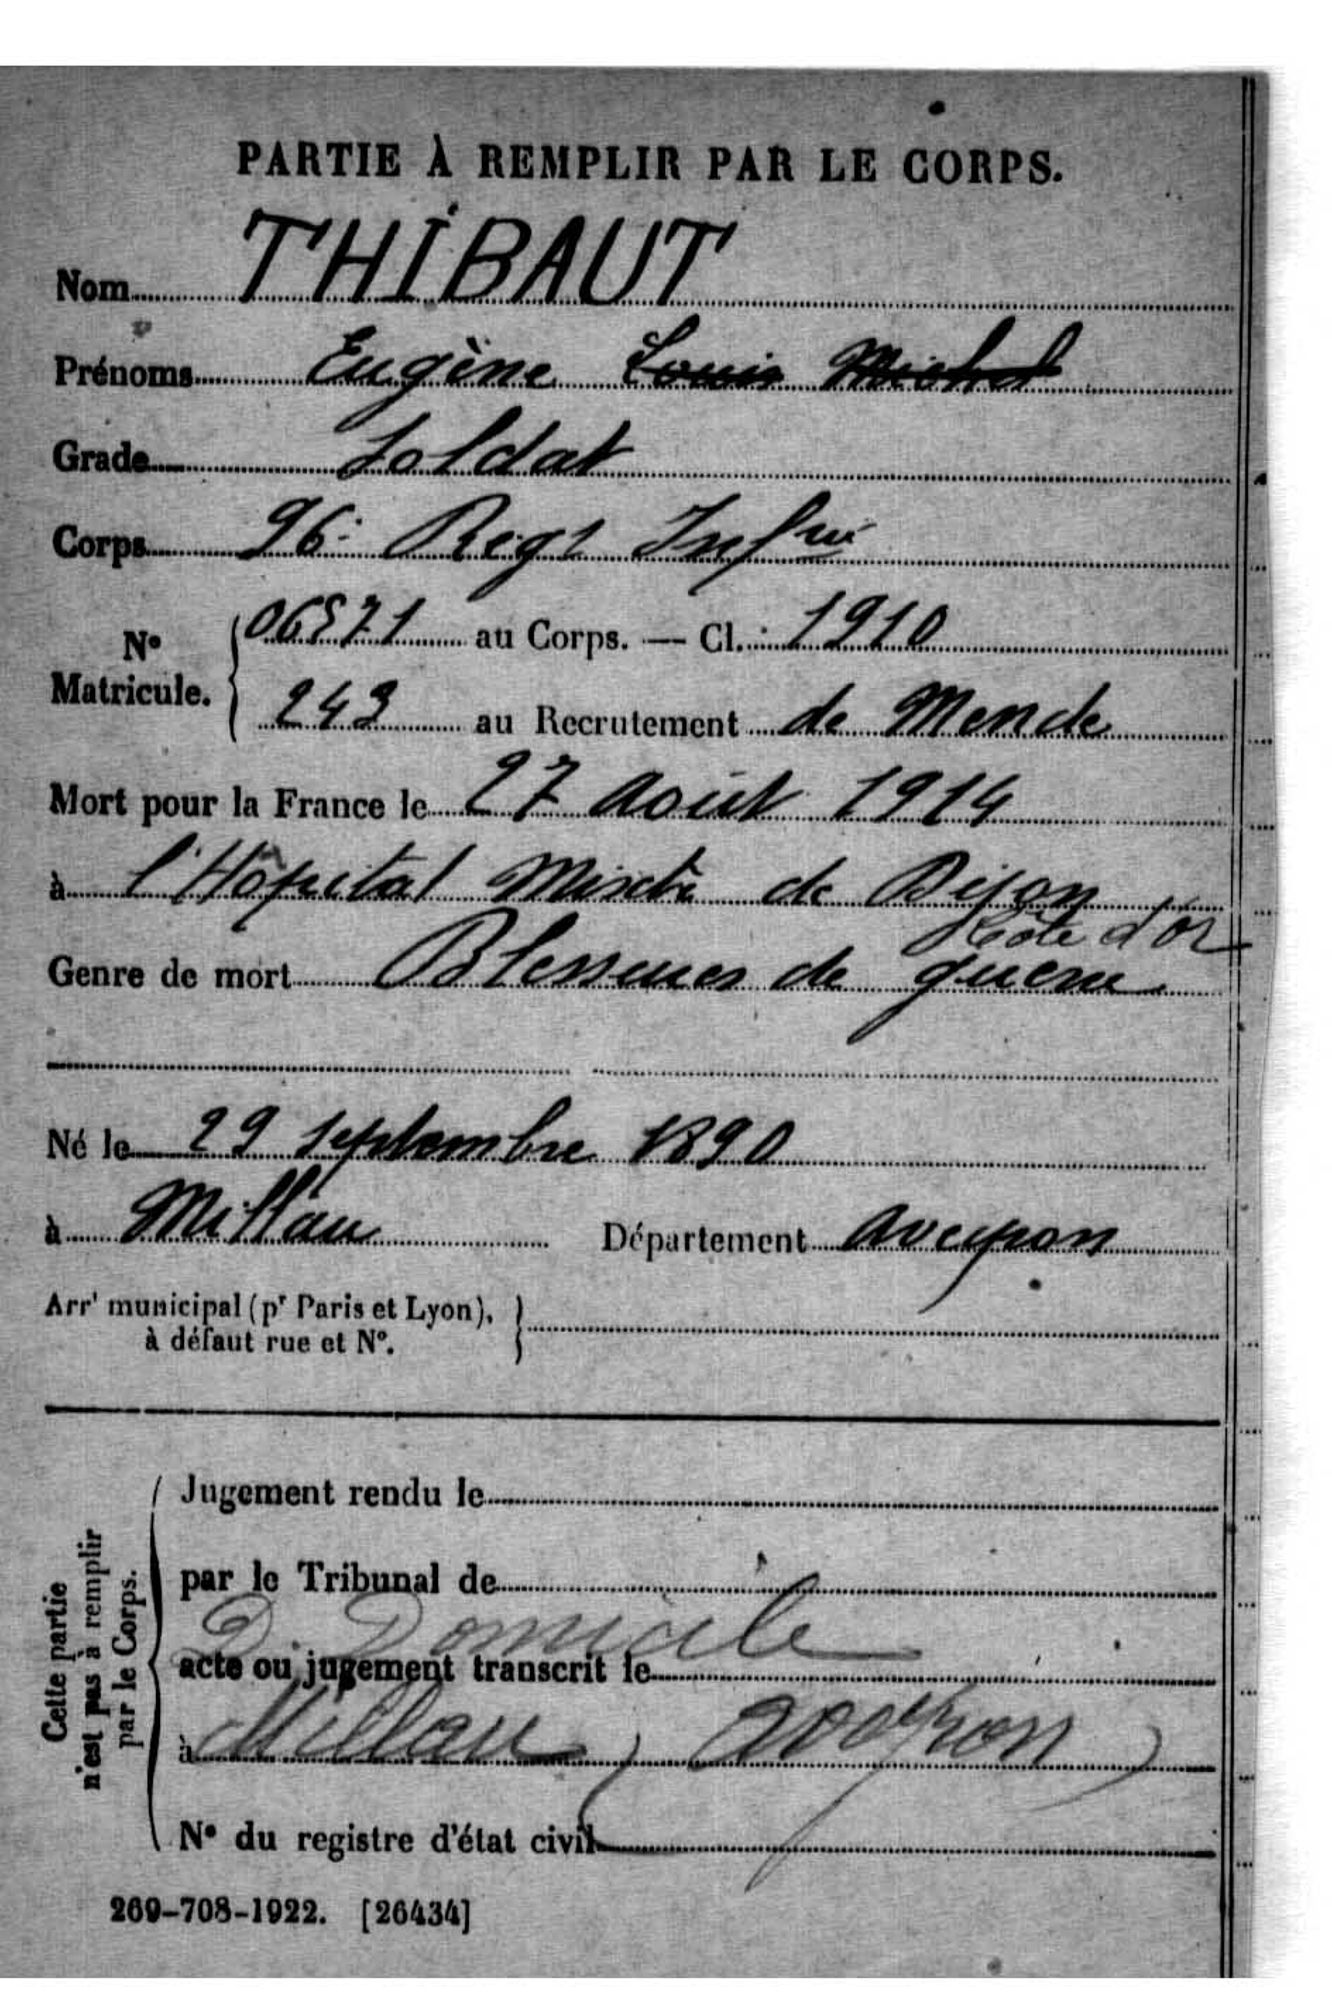 PARTIE À REMPLIR PAR LE CORPS.
Nom THIBAUT
Prénoms Eugène Louis Michel
Grade Soldat
Corps 96e Regt Infrie
N° Matricule. 06571 au Corps. — Cl. 1910
243 au Recrutement de Mende
Mort pour la France le 27 Août 1914
à l'Hôpital Mixte de Dijon
Côte d'Or
Genre de mort Blessures de guerre
Né le 29 septembre 1890
à Millau Département Aveyron
Arrt municipal (pr Paris et Lyon),
à défaut rue et N°.
Cette partie
n'est pas à remplir
par le Corps.
Jugement rendu le
par le Tribunal de
D. Domicile
acte ou jugement transcrit le
à Millau, Aveyron
N° du registre d'état civil
269-708-1922. [26434]